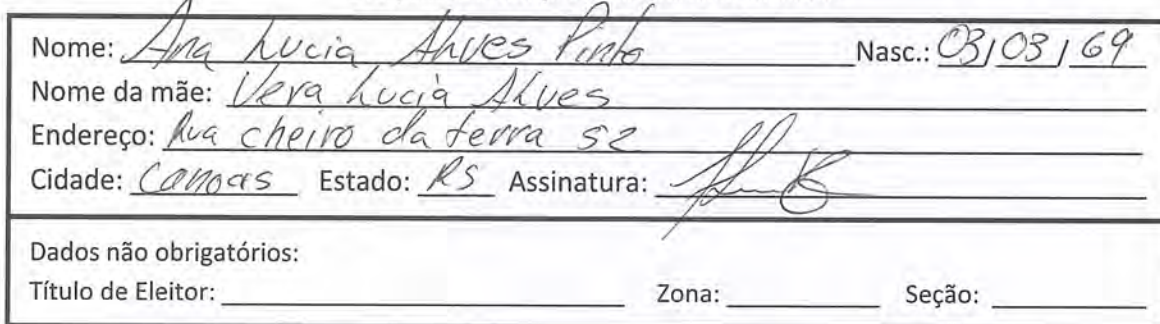 Nome: Ana Lucia Alves Pinto Nasc.: 03/03/69
Nome da mãe: Vera Lucia Alves
Endereço: Rua cheiro da terra 52
Cidade: Canoas Estado: RS Assinatura:
Dados não obrigatórios:
Título de Eleitor: Zona: Seção: